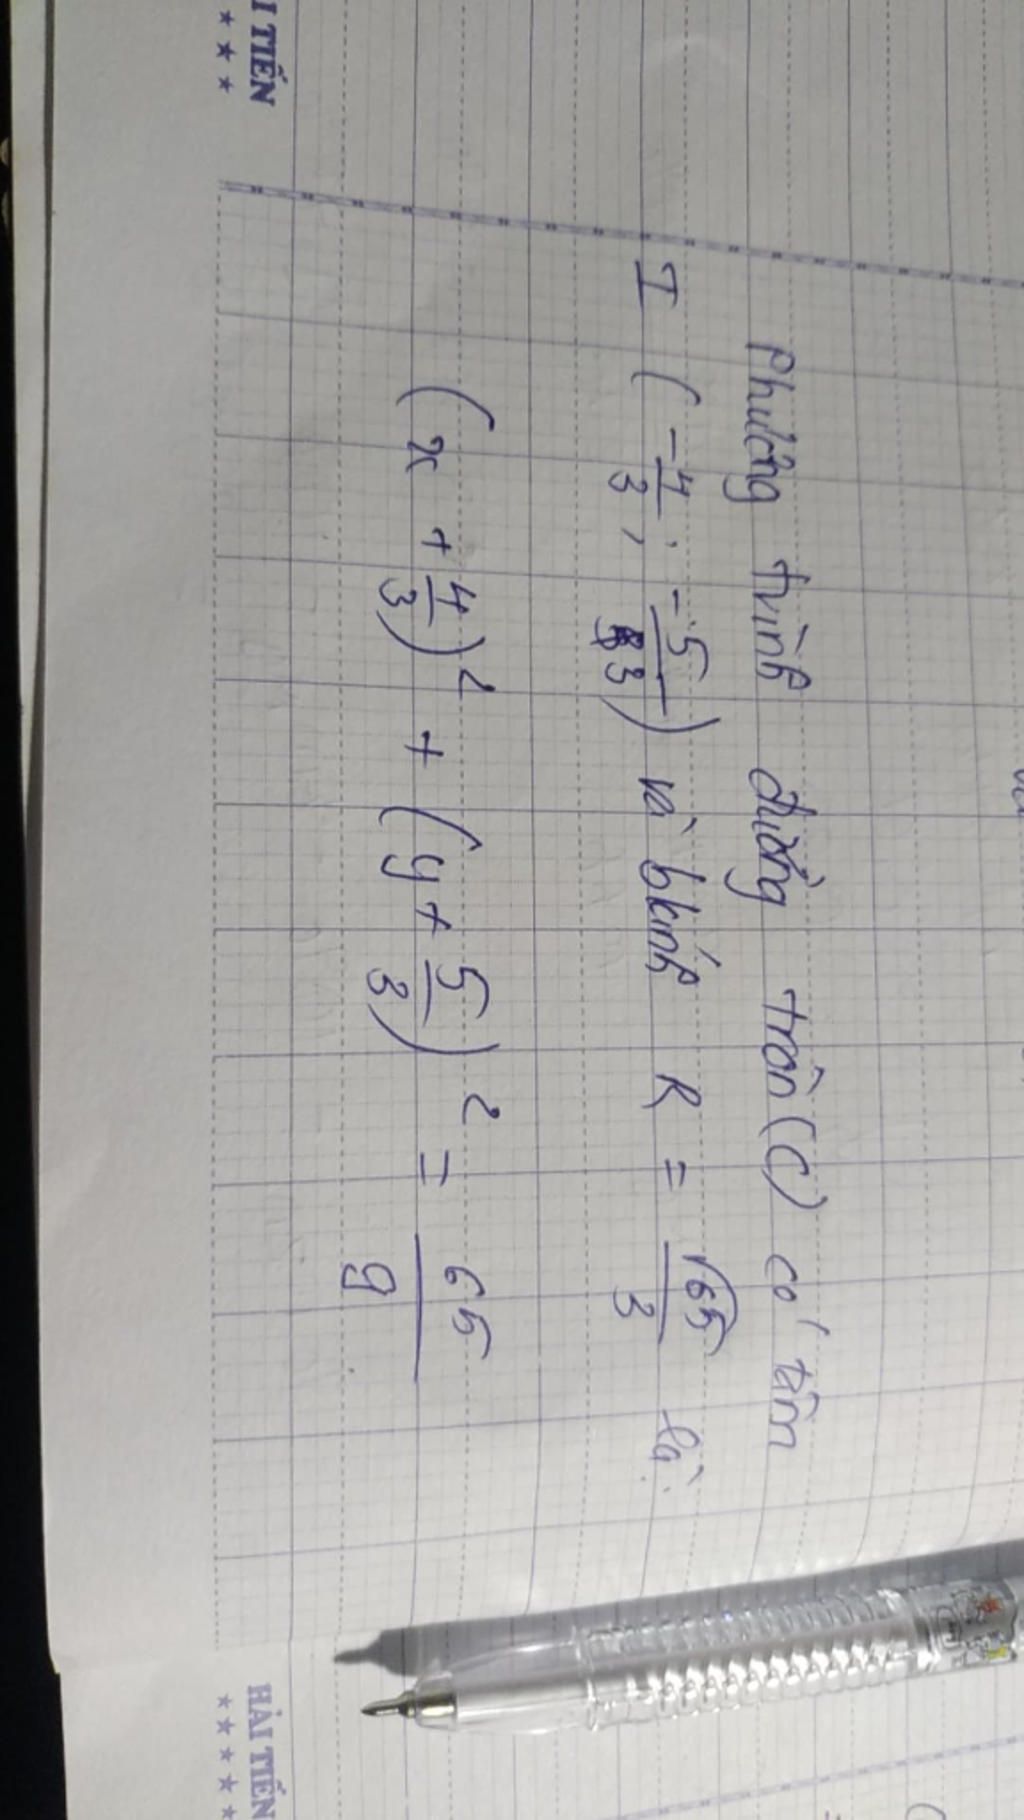 I TIẾN
★ ★ ★
Phương trình đường tròn (C) có tâm
I (-4/3; -5/3) và bkính R = √65/3 là:
(x + 4/3)² + (y + 5/3)² = 65/9
HẢI TIẾN
★ ★ ★ ★ ★